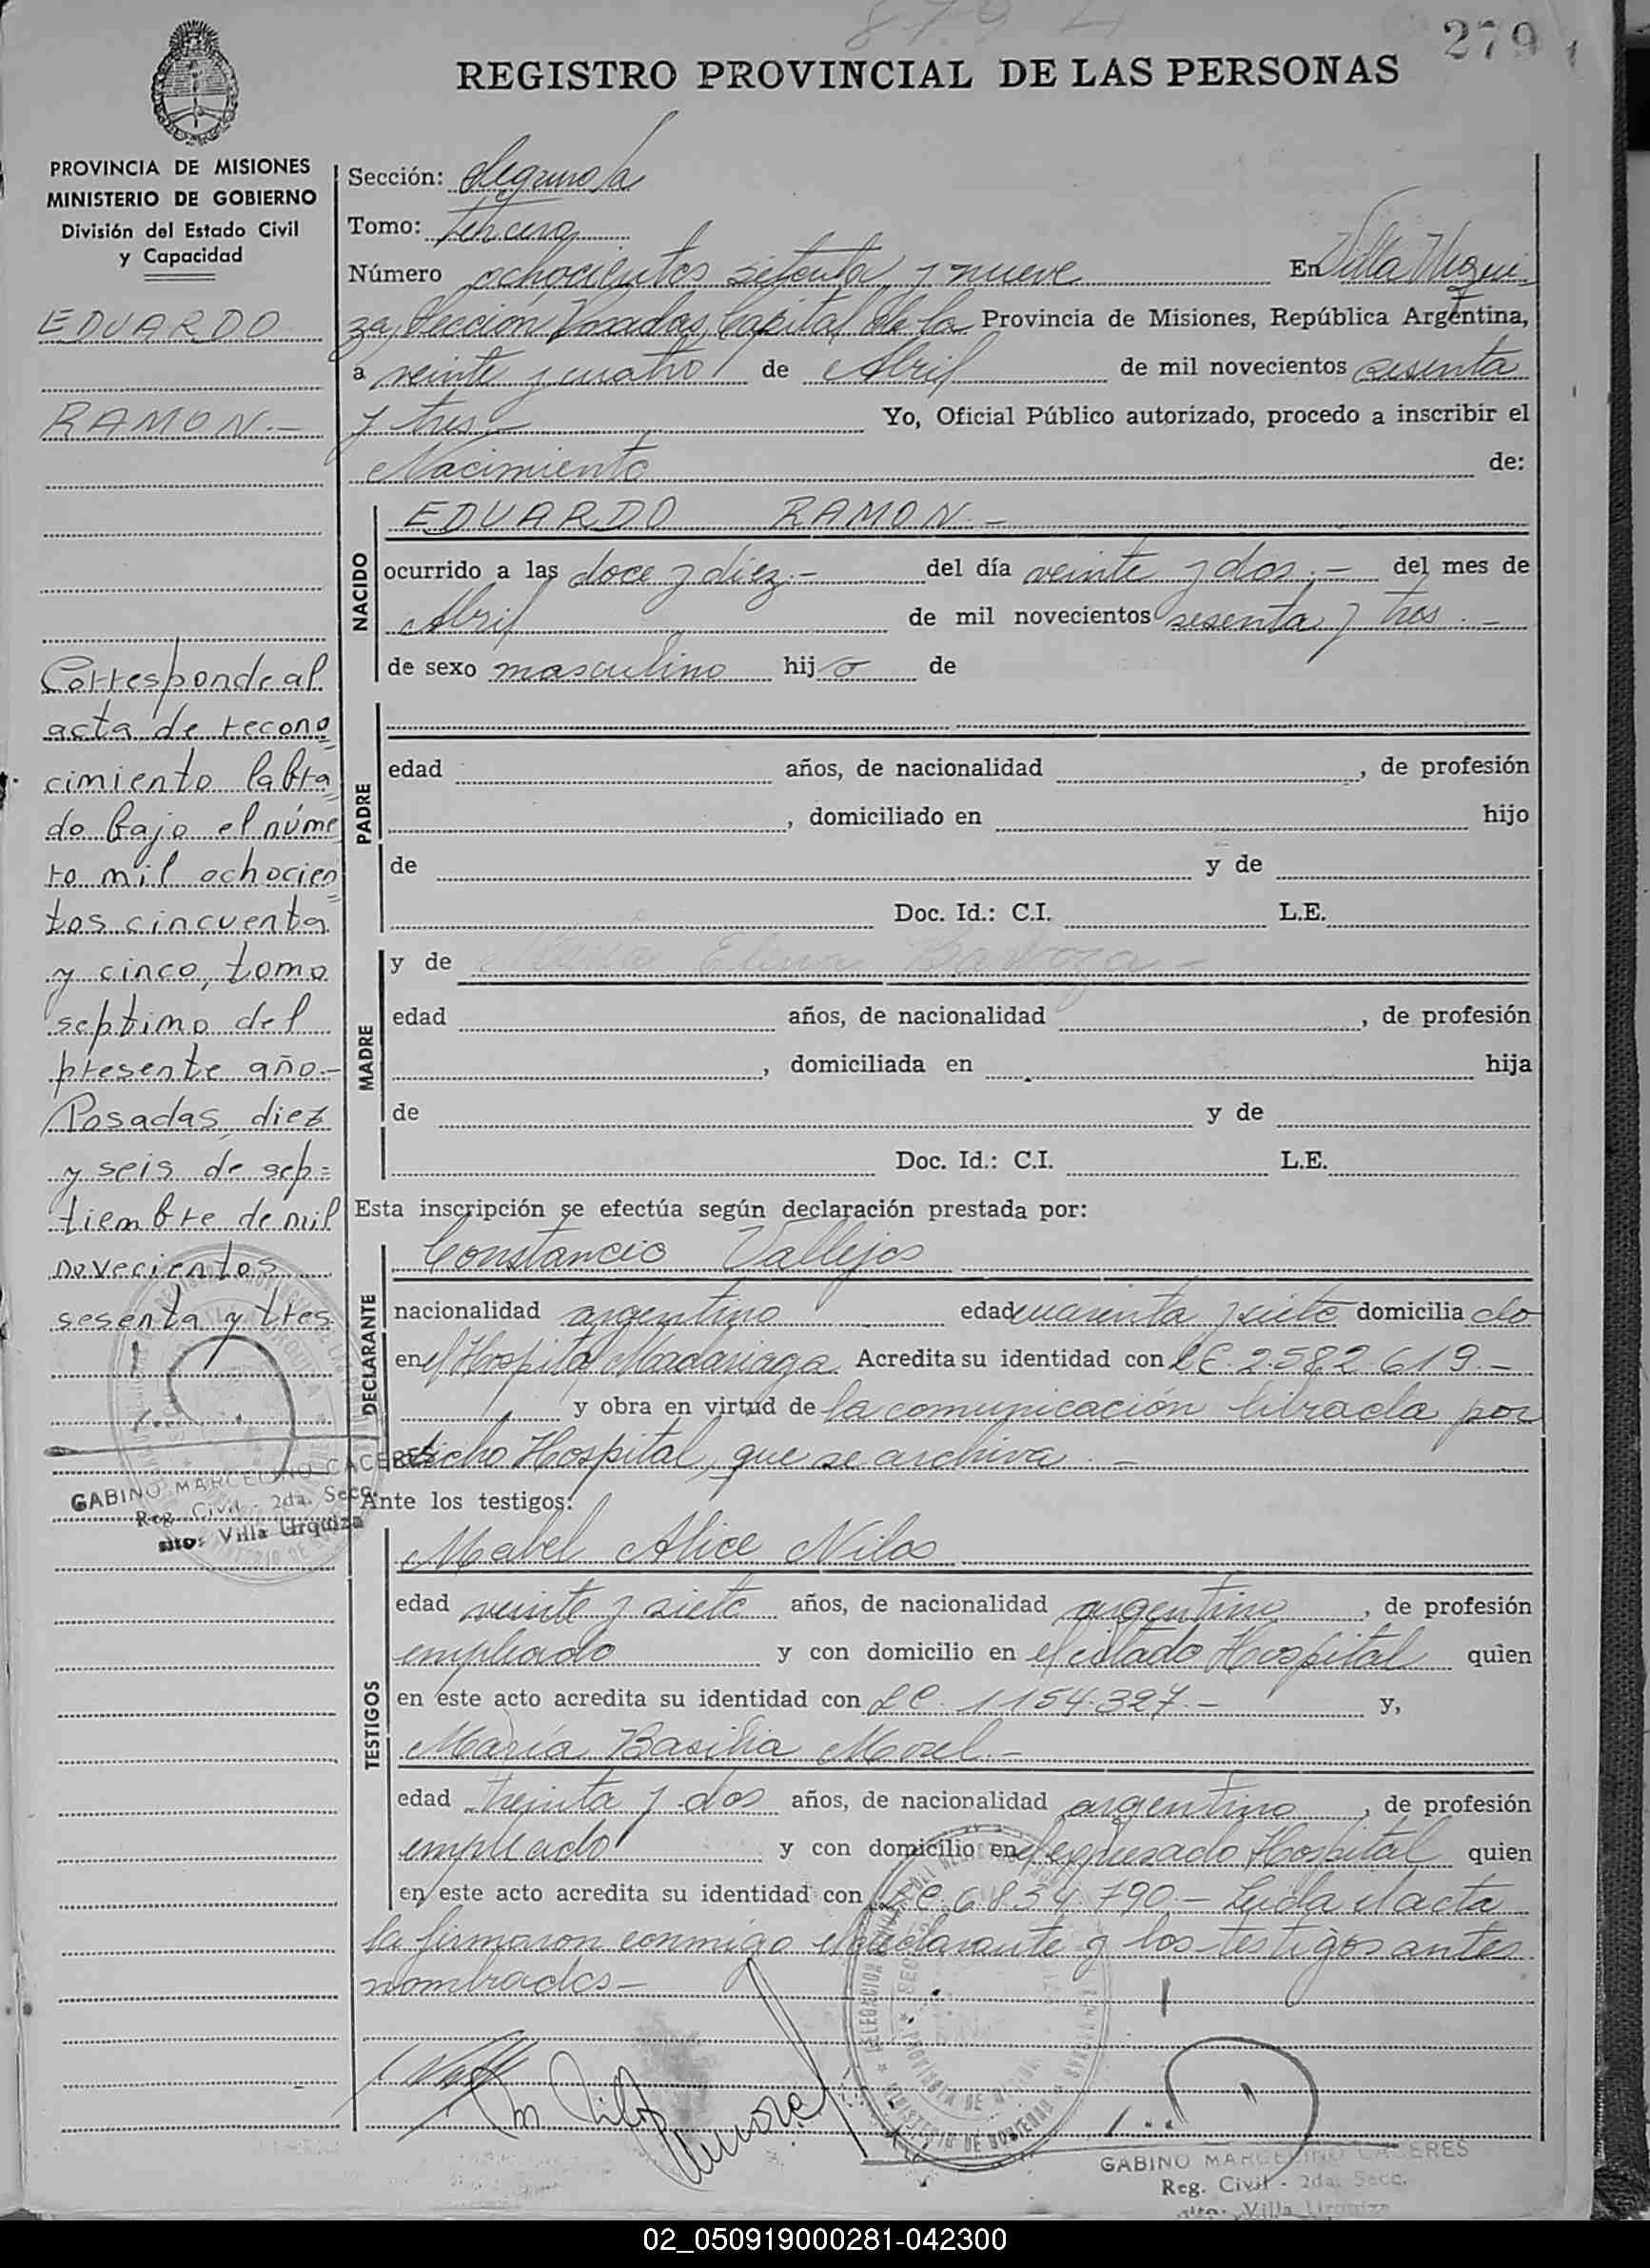 879
279
REGISTRO PROVINCIAL DE LAS PERSONAS
PROVINCIA DE MISIONES
MINISTERIO DE GOBIERNO
División del Estado Civil
y Capacidad
EDUARDO
RAMON.-
Corresponde al
acta de recono
cimiento labra
do bajo el núme
ro mil ochocien
tos cincuenta
y cinco, tomo
septimo del
presente año.-
Posadas, diez
y seis de sep=
tiembre de mil
novecientos
sesenta y tres
GABINO MARCELINO CACERES
Reg. Civil - 2da. Secc.
sito: Villa Urquiza
Sección: Segunda
Tomo: Tercero
Número ochocientos setenta y nueve En Villa Urqui
za, Sección Posadas, Capital de la Provincia de Misiones, República Argentina,
a veinte y cuatro de Abril de mil novecientos sesenta
y tres.- Yo, Oficial Público autorizado, procedo a inscribir el
Nacimiento de:
NACIDO
EDUARDO RAMON.-
ocurrido a las doce y diez.- del día veinte y dos.- del mes de
Abril de mil novecientos sesenta y tres.-
de sexo masculino hijo de
PADRE
edad años, de nacionalidad , de profesión
, domiciliado en hijo
de y de
Doc. Id.: C.I. L.E.
MADRE
y de María Elena Barboza-
edad años, de nacionalidad , de profesión
, domiciliada en hija
de y de
Doc. Id.: C.I. L.E.
Esta inscripción se efectúa según declaración prestada por:
DECLARANTE
Constancio Vallejos
nacionalidad argentino edad cuarenta y siete domicilia do
en el Hospital Madariaga Acredita su identidad con L.E. 2.582.619.-
y obra en virtud de la comunicación librada por
dicho Hospital, que se archiva.-
Ante los testigos:
TESTIGOS
Mabel Alice Nilos
edad veinte y siete años, de nacionalidad argentino, de profesión
empleado y con domicilio en el citado Hospital quien
en este acto acredita su identidad con L.C. 1154.327.- y,
María Basilia Morel.-
edad treinta y dos años, de nacionalidad argentino, de profesión
empleado y con domicilio en el expresado Hospital quien
en este acto acredita su identidad con L.C. 6.834.790.- Leida el acta
la firmaron conmigo el declarante y los testigos antes
nombrados-
GABINO MARCELINO CACERES
Reg. Civil - 2da. Secc.
sito: Villa Urquiza
02_050919000281-042300